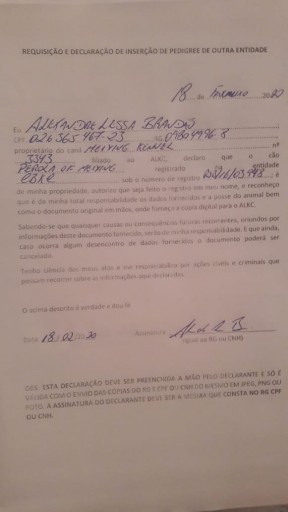 REQUISIÇÃO E DECLARAÇÃO DE INSERÇÃO DE PEDIGREE DE OUTRA ENTIDADE
18 de Fevereiro 2020
Eu ALEXANDRE LESSA BRANDÃO
CPF 026 365 467-23 RG
proprietário do canil MEIXING KENNEL nº
3343 filiado ao ALKC, declaro que o cão
PEROLA OF MEIXING registrado entidade
CBKC sob o número de registro é
de minha propriedade, autorizo que seja feito o registro em meu nome, e reconheço
que é da minha total responsabilidade os dados fornecidos e a posse do animal bem
como o documento original em mãos, onde forneço a cópia digital para o ALKC.
Saliendo-se que quaisquer causas ou consequências futuras recorrentes, oriundos por
informações deste documento fornecido, serão de minha responsabilidade. E que ainda,
caso ocorra algum desencontro de dados fornecidos o documento poderá ser
cancelado.
Tenho ciência dos meus atos e me responsabilizo por ações cíveis e criminais que
possam recorrer sobre as informações aqui declaradas.
O acima descrito é verdade e dou fé
Data 18/02/2020 Assinatura
(igual ao RG ou CNH)
OBS: ESTA DECLARAÇÃO DEVE SER PREENCHIDA A MÃO PELO DECLARANTE E SÓ É
VÁLIDA COM O ENVIO DAS CÓPIAS DO RG E CPF OU CNH DO MESMO EM JPEG, PNG OU
FOTO. A ASSINATURA DO DECLARANTE DEVE SER A MESMA QUE CONSTA NO RG CPF
OU CNH.